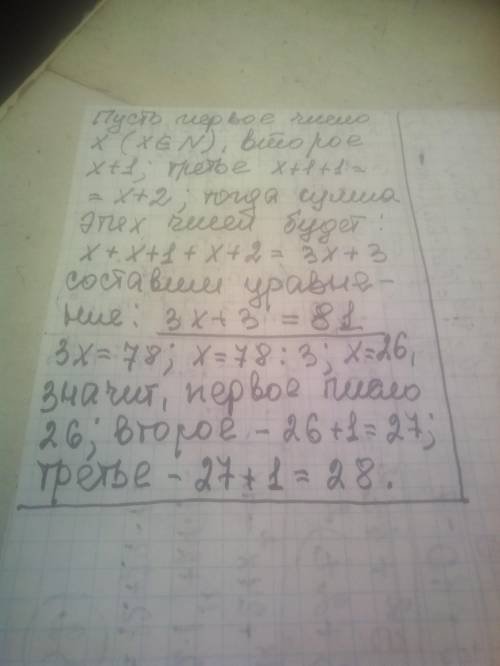 Пусть первое число
x (x∈N), второе
x+1; третье x+1+1=
= x+2; тогда сумма
этих чисел будет:
x+x+1+x+2= 3x+3
составим уравне-
ние: 3x+3 = 81
3x=78; x=78:3; x=26,
значит, первое число
26; второе - 26+1=27;
третье - 27+1=28.